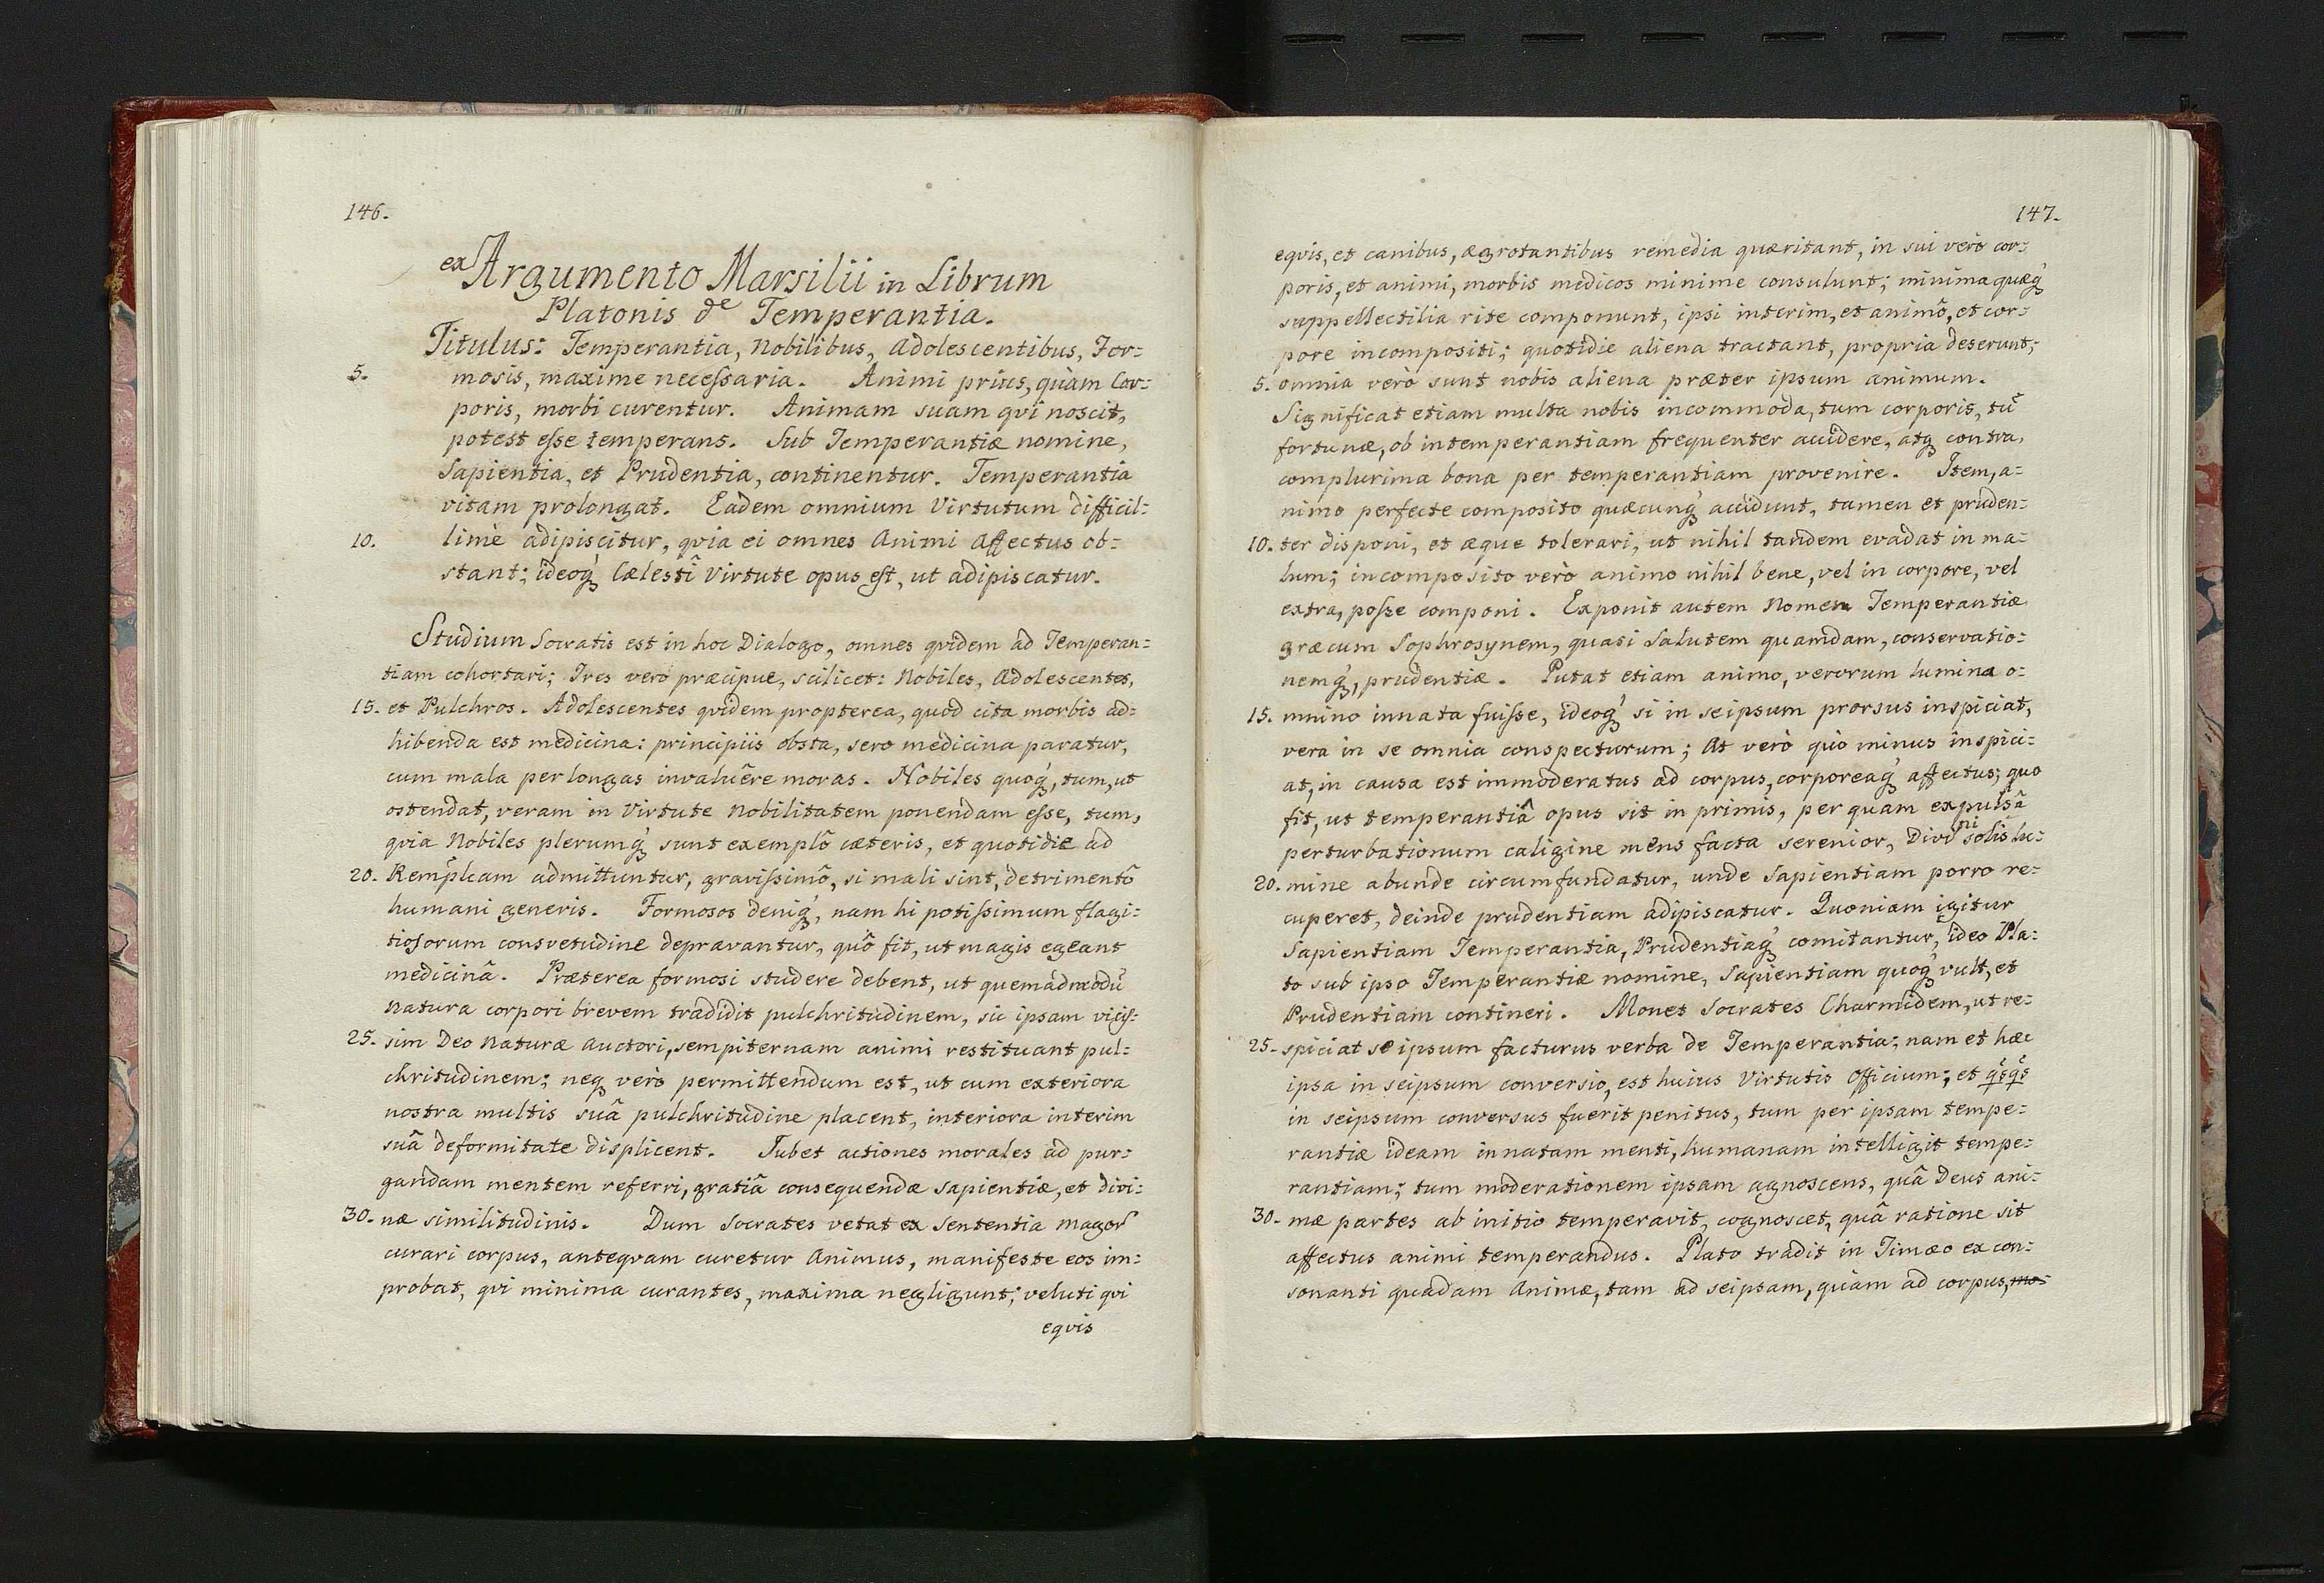 146.
ex Argumento Marsilii in Librum
Platonis de Temperantia.
Titulus: Temperantia, Nobilibus, Adolescentibus, For=
5. mosis, maxime necessaria. Animi priùs, quàm Cor=
poris, morbi curentur. Animam suam qvi noscit,
potest esse temperans. Sub Temperantiæ nomine,
Sapientia, et Prudentia, continentur. Temperantia
vitam prolongat. Eadem omnium Virtutum difficil=
10. limè adipiscitur, qvia ei omnes Animi Affectus ob=
stant; ideoq́ꝫ Cælesti Virtute opus est, ut adipiscatur.
Studium Socratis est in hoc Dialogo, omnes qvidem ad Temperan=
tiam cohortari; Tres verò præcipue, scilicet: Nobiles, Adolescentes,
15. et Pulchros. Adolescentes qvidem propterea, quòd cita morbis ad=
hibenda est medicina: principiis obsta, sero medicina paratur,
cum mala per longas invaluêre moras. Nobiles quoq́ꝫ, tum, ut
ostendat, veram in Virtute Nobilitatem ponendam esse, tum,
qvia Nobiles plerumq́ꝫ sunt exemplô cæteris, et quotidie ad
20. Rempl̃cam admittuntur, gravissimô, si mali sint, detrimentô
humani generis. Formosos deniq́ꝫ, nam hi potissimum flagi=
tiosorum consvetudine depravantur, quô fit, ut magis egeant
medicinâ. Præterea formosi studere debent, ut quemádmodũ
Natura corpori brevem tradidit pulchritudinem, sic ipsam vicis=
25. sim Deo Naturæ Auctori, sempiternam animi restituant pul=
chritudinem; neqꝫ verò permittendum est, ut cum exteriora
nostra multis suâ pulchritudine placent, interiora interim
suâ deformitate displicent. Iubet actiones morales ad pur=
gandam mentem referri, gratiâ consequendæ sapientiæ, et divi=
30. næ similitudinis. Dum Socrates vetat ex Sententia Magor̃
curari corpus, anteqvam curetur Animus, manifeste eos im=
probat, qvi minima curantes, maxima negligunt; veluti qvi
eqvis
147.
eqvis, et canibus, ægrotantibus remedia quæritant, in sui verò cor=
poris, et animi, morbis medicos minime consulunt; minima quæq́ꝫ
suppellectilia rite componunt, ipsi interim, et animô, et cor=
pore incompositi; quotidie aliena tractant, propria deserunt;
5. omnia verò sunt nobis aliena præter ipsum animum.
Significat etiam multa nobis incommoda, tum corporis, tũ
fortunæ, ob intemperantiam frequenter accidere, atqꝫ contra,
complurima bona per temperantiam provenire. Item, a=
nimo perfecte composito quæcunq́ꝫ accidunt, tamen et pruden=
10. ter disponi, et æque tolerari, ut nihil tandem evadat in ma=
lum; incomposito verò animo nihil bene, vel in corpore, vel
extra, posse componi. Exponit autem Nomen Temperantiæ
græcum Sophrosynem, quasi Salutem quamdam, conservatio=
nemq́ꝫ, prudentiæ. Putat etiam animo, verorum lumina o=
15. mnino innata fuisse, ideoq́ꝫ si in seipsum prorsus inspiciat,
vera in se omnia conspecturum; At verò quò minus inspici=
at, in causa est immoderatus ad corpus, corporeaq́ꝫ affectus; quo
fit, ut temperantiâ opus sit in primis, per quam expulsâ
perturbationum caligine mens facta serenior, Divini solis lu=
20. mine abunde circumfundatur, unde Sapientiam porro re=
cuperet, deinde prudentiam adipiscatur. Quoniam igitur
Sapientiam Temperantia, Prudentiaq́ꝫ comitantur, ideo Pla=
to sub ipso Temperantiæ nomine, Sapientiam quoq́ꝫ vult, et
Prudentiam contineri. Monet Socrates Charmidem, ut re=
25. spiciat seipsum facturus verba de Temperantia; nam et hæc
ipsa in seipsum conversio, est huius Virtutis Officium; et q̃sq̃s
in seipsum conversus fuerit penitus, tum per ipsam tempe=
rantiæ ideam innatam menti, humanam intelligit tempe=
rantiam; tum moderationem ipsam agnoscens, quâ Deus ani=
30. mæ partes ab initio temperavit, cognoscet, quâ ratione sit
affectus animi temperandus. Plato tradit in Timæo ex con=
sonanti quadam Animæ, tam ad seipsam, quàm ad corpus, mo=